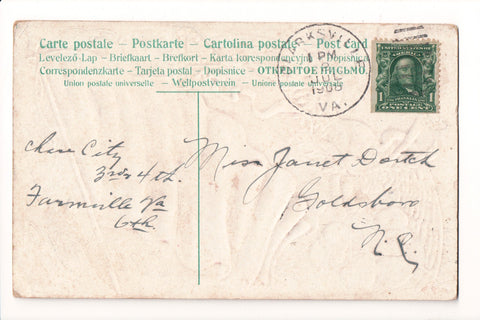 Carte postale – Postkarte – Cartolina postale – Post card
Levelező-Lap – Briefkaart – Brefkort – Karta korespondencyjna – Dopisnica
Correspondenzkarte – Tarjeta postal – Dopisnice – ОТКРЫТОЕ ПИСЬМО.
Union postale universelle – Weltpostverein – Unione postale universale
CLARKSVILLE
1 PM
VA.
1 POSTAGE 1
ONE CENT
Chase City
3rd, 4th.
Farmville Va
6th.
Miss Janet Dortch
Goldsboro
N.C.